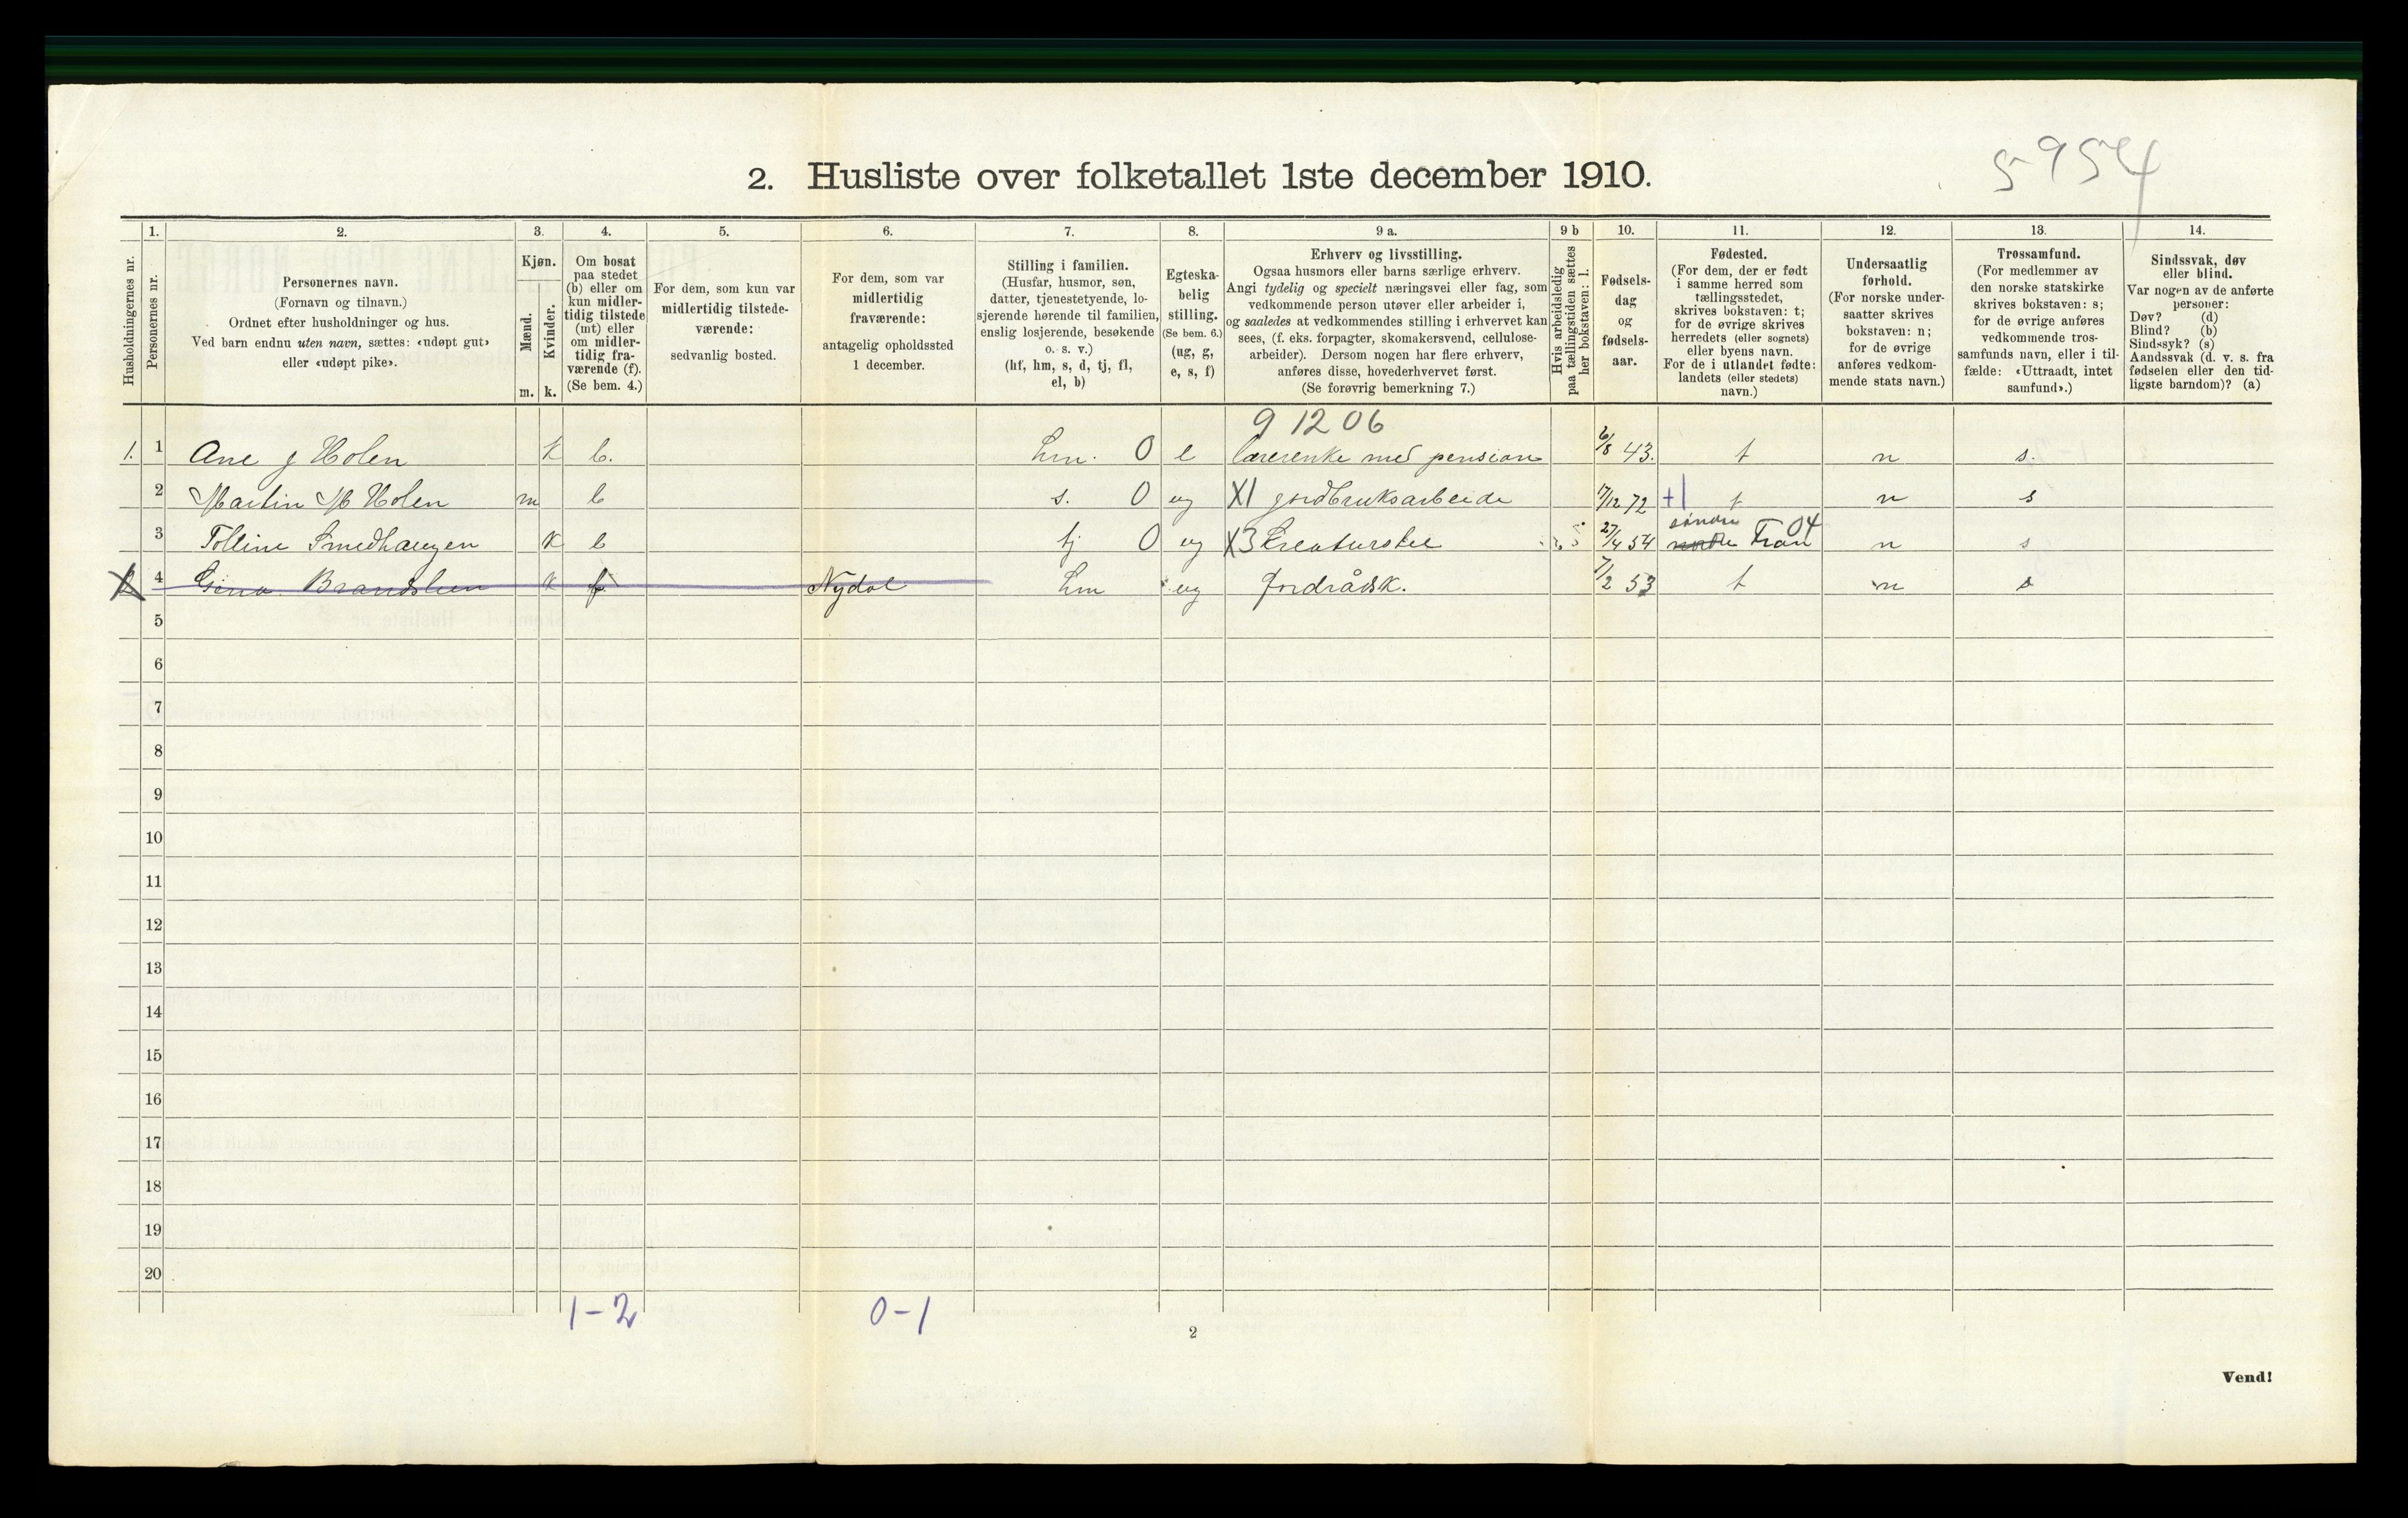 5954
2. Husliste over folketallet 1ste december 1910.
Husholdningernes nr.
1.
Personernes nr.
2.
Personernes navn.
(Fornavn og tilnavn.)
Ordnet efter husholdninger og hus.
Ved barn endnu uten navn, sættes: «udøpt gut»
eller «udøpt pike».
3.
Kjøn.
Mænd.
Kvinder.
m. k.
4.
Om bosat
paa stedet
(b) eller om
kun midler-
tidig tilstede
(mt) eller
om midler-
tidig fra-
værende (f).
(Se bem. 4.)
5.
For dem, som kun var
midlertidig tilstede-
værende:
sedvanlig bosted.
6.
For dem, som var
midlertidig
fraværende:
antagelig opholdssted
1 december.
7.
Stilling i familien.
(Husfar, husmor, søn,
datter, tjenestetyende, lo-
sjerende hørende til familien,
enslig losjerende, besøkende
o. s. v.)
(hf, hm, s, d, tj, fl,
el, b)
8.
Egteska-
belig
stilling.
(Se bem. 6.)
(ug, g,
e, s, f)
9 a.
Erhverv og livsstilling.
Ogsaa husmors eller barns særlige erhverv.
Angi tydelig og specielt næringsvei eller fag, som
vedkommende person utøver eller arbeider i,
og saaledes at vedkommendes stilling i erhvervet kan
sees, (f. eks. forpagter, skomakersvend, cellulose-
arbeider). Dersom nogen har flere erhverv,
anføres disse, hovederhvervet først.
(Se forøvrig bemerkning 7.)
9 b
Hvis arbeidsledig
paa tællingstiden sættes
her bokstaven: l.
10.
Fødsels-
dag
og
fødsels-
aar.
11.
Fødested.
(For dem, der er født
i samme herred som
tællingsstedet,
skrives bokstaven: t;
for de øvrige skrives
herredets (eller sognets)
eller byens navn.
For de i utlandet fødte:
landets (eller stedets)
navn.)
12.
Undersaatlig
forhold.
(For norske under-
saatter skrives
bokstaven: n;
for de øvrige
anføres vedkom-
mende stats navn.)
13.
Trossamfund.
(For medlemmer av
den norske statskirke
skrives bokstaven: s;
for de øvrige anføres
vedkommende tros-
samfunds navn, eller i til-
fælde: «Uttraadt, intet
samfund».)
14.
Sindssvak, døv
eller blind.
Var nogen av de anførte
personer:
Døv? (d)
Blind? (b)
Sindssyk? (s)
Aandssvak (d. v. s. fra
fødselen eller den tid-
ligste barndom)? (a)
9 12 06
1. 1 Ane J Holen k b. hm. 0 e lærerenke med pension 6/8 43. t n s.
2 Martin M Holen m b s. 0 ug X1 jordbruksarbeide 17/12 72 +1 t n s
søndre 04
3 Tolline Smedhaugen k b tj 0 ug X3 Kreaturstel 27/4 54 Fron n s
4 Gina Brandslien k f Nydal hm ug Jordråsk. 7/2 53 t n s
5
6
7
8
9
10
11
12
13
14
15
16
17
18
19
20
1-2 0-1
2
Vend!